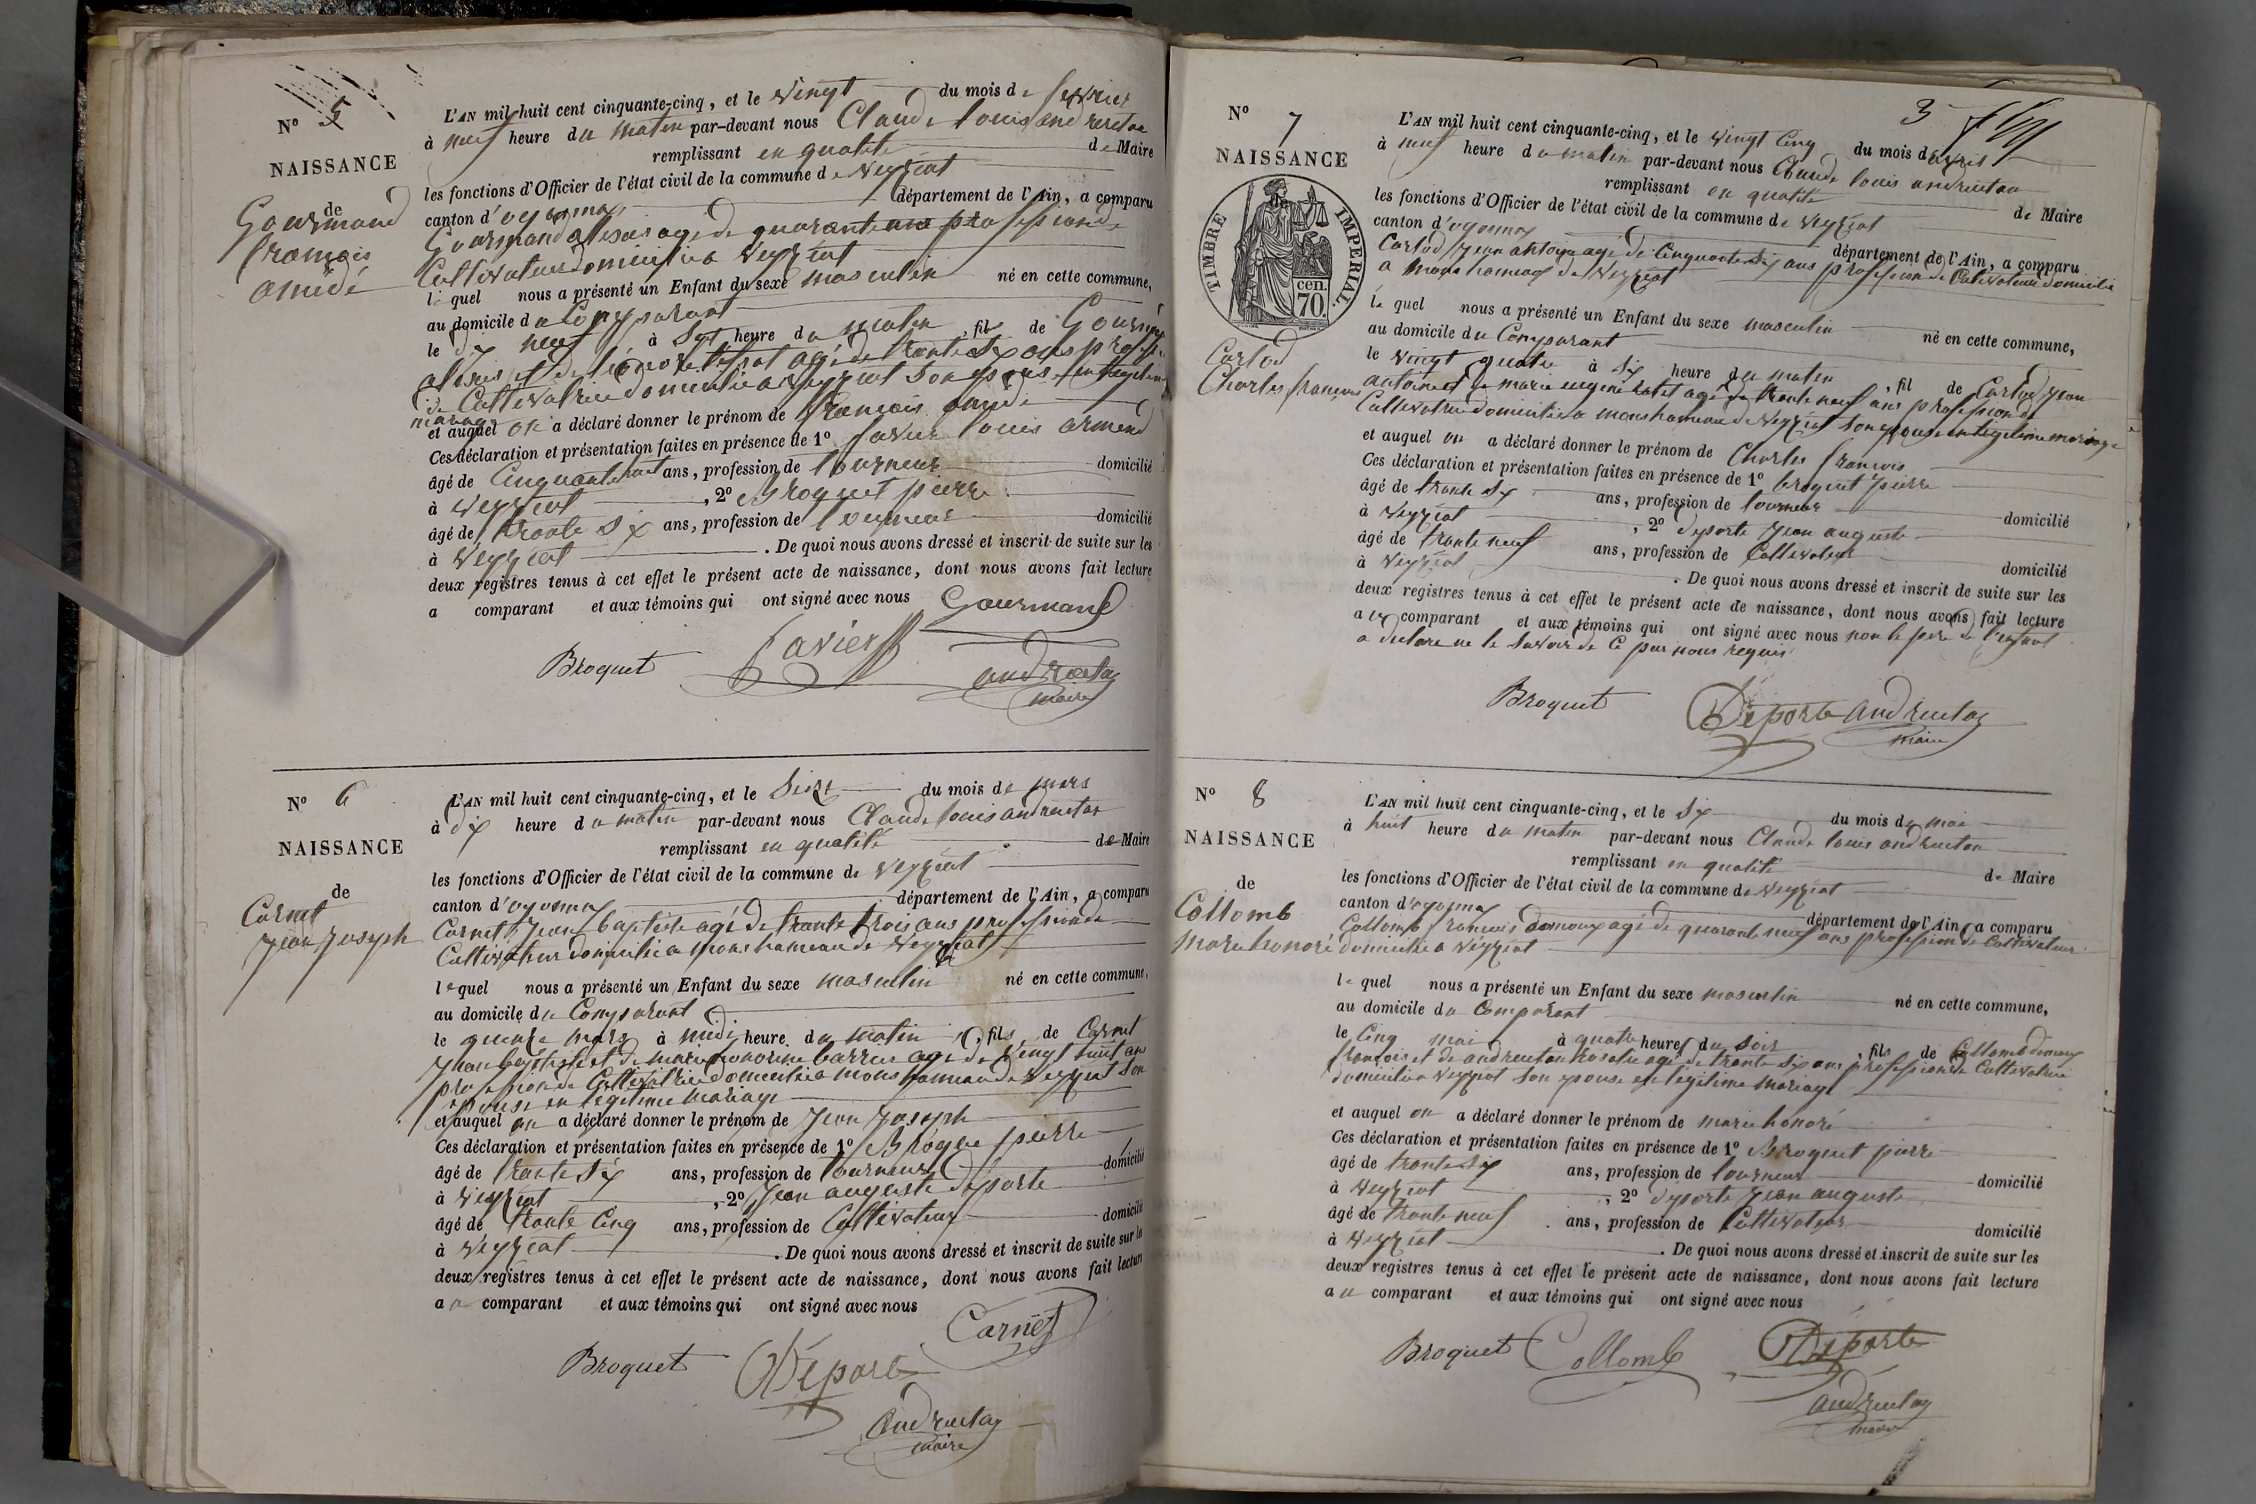 N° 5
NAISSANCE
de
Gourmand
françois
amédé
L'AN mil huit cent cinquante-cinq, et le vingt du mois de fevrier
à neuf heure du matin par-devant nous Claude louis andreetan
remplissant en qualité de Maire
les fonctions d'Officier de l'état civil de la commune de Veyziat
canton d'oyonnax département de l'Ain, a comparu
Gourmand alexis agé de quarante ans profession de
Cultivateur domicilié a Veyziat
le quel nous a présenté un Enfant du sexe masculin né en cette commune,
au domicile du Comparant
le dix neuf à Sept heure du matin, fils de Gourmand
alexis et de agé de trante Six ans profession
de Cultivatrice domiciliée a Veyziat Son epouse en legitime
mariage
et auquel on a déclaré donner le prénom de françois amédé
Ces déclaration et présentation faites en présence de 1° Savier louis armend
âgé de Cinquante huit ans, profession de tourneur domicilié
à Veyziat, 2° Broquet pierre
âgé de trante Six ans, profession de tourneur domicilié
à Veyziat. De quoi nous avons dressé et inscrit de suite sur les
deux registres tenus à cet effet le présent acte de naissance, dont nous avons fait lecture
a comparant et aux témoins qui ont signé avec nous Gourmand
Broquet Savier andreetan
maire
N° 6
NAISSANCE
de
Carnet
Jean Joseph
L'AN mil huit cent cinquante-cinq, et le Seize du mois de mars
à dix heure du matin par-devant nous Claude louis andreetan
remplissant en qualité de Maire
les fonctions d'Officier de l'état civil de la commune de Veyziat
canton d'oyonnax département de l'Ain, a comparu
Carnet Jean baptiste agé de trante trois ans profession de
Cultivateur domicilié a mons hameau de Veyziat
le quel nous a présenté un Enfant du sexe masculin né en cette commune,
au domicile du Comparant
le quinze mars à midi heure du matin, fils de Carnet
Jean baptiste et de marie honorine agé de Vingt huit ans
profession de Cultivatrice domiciliée a mons hameau de Veyziat Son
epouse en legitime mariage
et auquel on a déclaré donner le prénom de Jean Joseph
Ces déclaration et présentation faites en présence de 1° Broque pierre
âgé de trante Six ans, profession de tourneur domicilié
à Veyziat, 2° Jean auguste déporte
âgé de trante Cinq ans, profession de Cultivateur domicilié
à Veyziat. De quoi nous avons dressé et inscrit de suite sur les
deux registres tenus à cet effet le présent acte de naissance, dont nous avons fait lecture
au comparant et aux témoins qui ont signé avec nous
Carnet
Broquet Déporte
andreetan
maire
3
N° 7
NAISSANCE
TIMBRE IMPERIAL.
cen.
70.
Carlod
Charles françois
L'AN mil huit cent cinquante-cinq, et le vingt Cinq du mois d'avril
à neuf heure du matin par-devant nous Claude louis andreetan
remplissant en qualité de Maire
les fonctions d'Officier de l'état civil de la commune de Veyziat
canton d'oyonnax département de l'Ain, a comparu
Carlod Jean antoine agé de Cinquante Six ans profession de Cultivateur domicilié
a mons hameau de Veyziat
le quel nous a présenté un Enfant du sexe masculin né en cette commune,
au domicile du Comparant
le vingt quatre à Six heure du matin, fil de Carlod Jean
antoine et de marie eugenie agé de trante neuf ans profession de
Cultivatrice domiciliée a mons hameau de Veyziat Son epouse en legitime mariage
et auquel on a déclaré donner le prénom de Charles françois
Ces déclaration et présentation faites en présence de 1° broquet pierre
âgé de trante Six ans, profession de tourneur domicilié
à Veyziat, 2° deporte Jean auguste
âgé de trante neuf ans, profession de Cultivateur domicilié
à Veyziat. De quoi nous avons dressé et inscrit de suite sur les
deux registres tenus à cet effet le présent acte de naissance, dont nous avons fait lecture
a comparant et aux témoins qui ont signé avec nous non le pere de l'enfant
a declare ne le Savoir de Ce par nous requis
Broquet Déporte andreetan
maire
N° 8
NAISSANCE
de
Collomb
marie honoré
L'AN mil huit cent cinquante-cinq, et le Six du mois de mai
à huit heure du matin par-devant nous Claude louis andreetan
remplissant en qualité de Maire
les fonctions d'Officier de l'état civil de la commune de Veyziat
canton d'oyonnax département de l'Ain, a comparu
Collomb françois agé de quarante neuf ans profession de Cultivateur
domicilié a Veyziat
le quel nous a présenté un Enfant du sexe masculin né en cette commune,
au domicile du Comparant
le Cinq mai à quatre heures du Soir, fils de Collomb
françois et de andreetan rosalie agé de trante Six ans profession de Cultivatrice
domiciliée a Veyziat Son epouse en legitime mariage
et auquel on a déclaré donner le prénom de marie honoré
Ces déclaration et présentation faites en présence de 1° Broquet pierre
âgé de trante Six ans, profession de tourneur domicilié
à Veyziat, 2° deporte Jean auguste
âgé de trante neuf ans, profession de Cultivateur domicilié
à Veyziat. De quoi nous avons dressé et inscrit de suite sur les
deux registres tenus à cet effet le présent acte de naissance, dont nous avons fait lecture
au comparant et aux témoins qui ont signé avec nous
Broquet Collomb Déporte
andreetan
maire